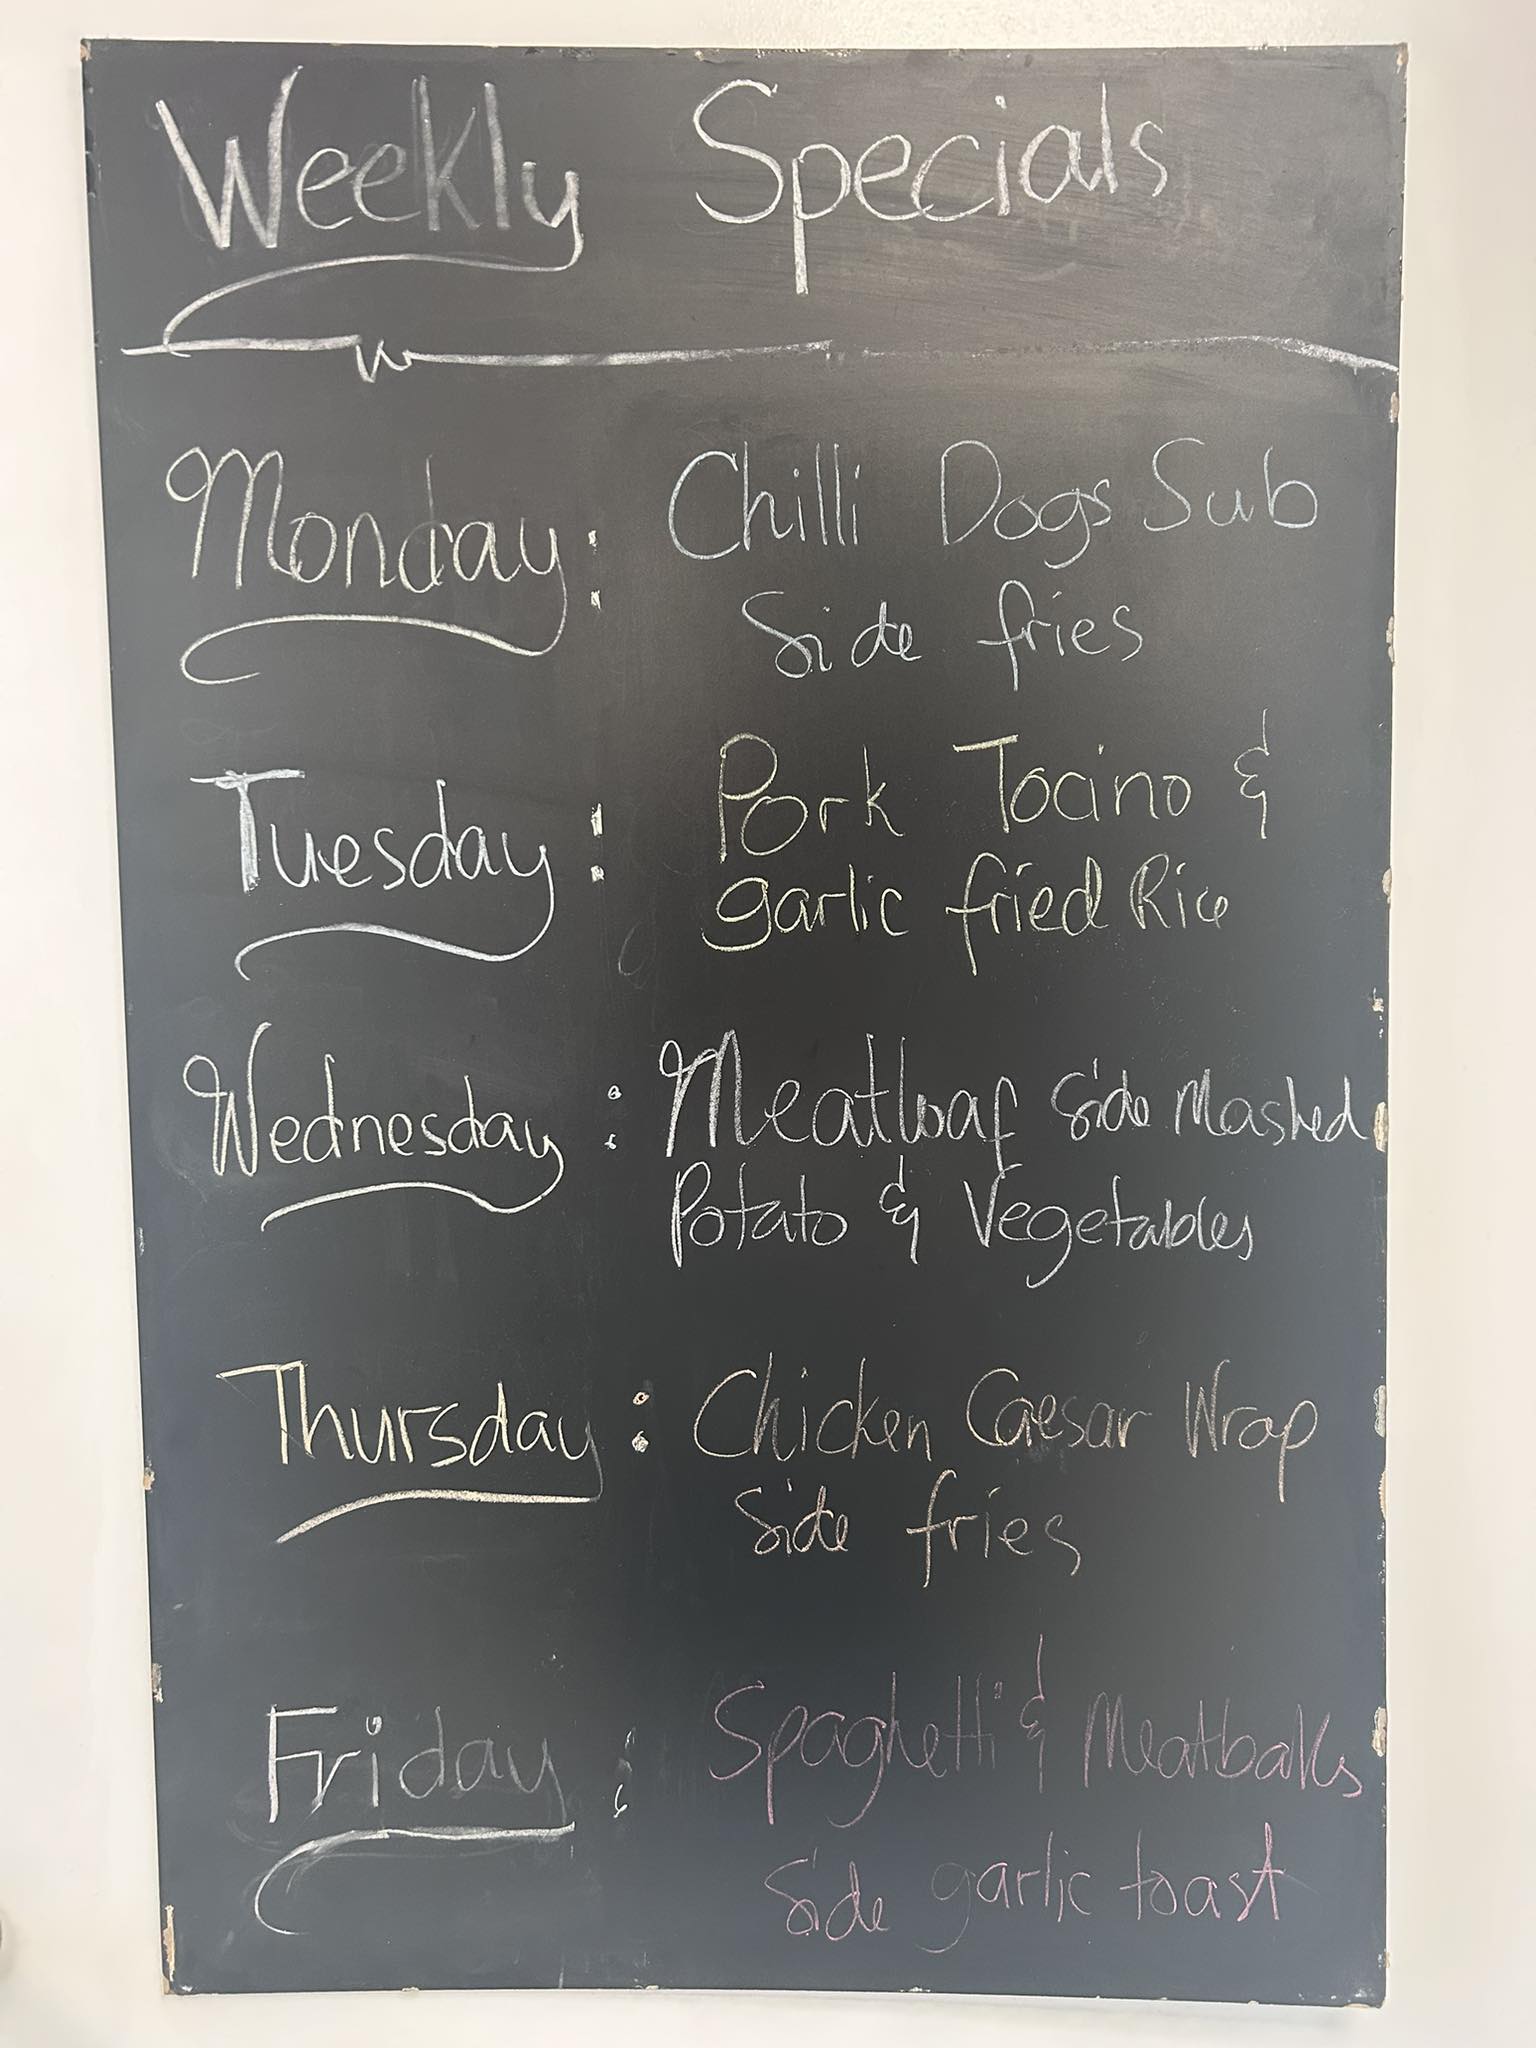 Weekly Specials
Monday: Chilli Dogs Sub
Side fries
Tuesday: Pork Tocino &
garlic fried Rice
Wednesday: Meatloaf Side Mashed
Potato & Vegetables
Thursday: Chicken Caesar Wrap
Side fries
Friday: Spaghetti & Meatballs
Side garlic toast